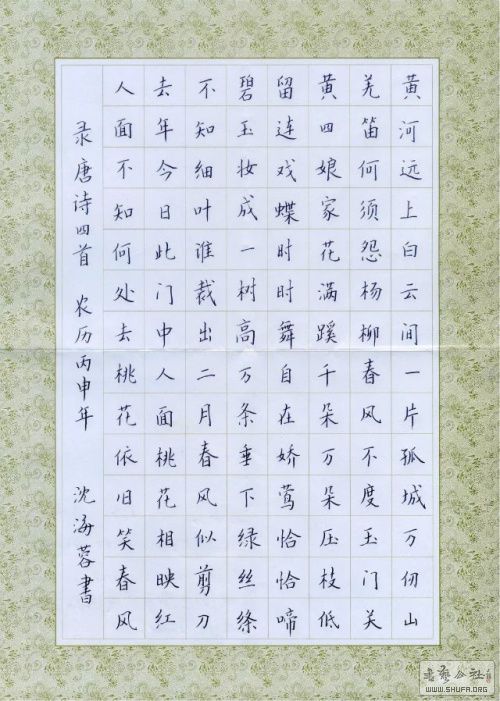 黄河远上白云间一片孤城万仞山
羌笛何须怨杨柳春风不度玉门关
黄四娘家花满蹊千朵万朵压枝低
留连戏蝶时时舞自在娇莺恰恰啼
碧玉妆成一树高万条垂下绿丝绦
不知细叶谁裁出二月春风似剪刀
去年今日此门中人面桃花相映红
人面不知何处去桃花依旧笑春风
录唐诗四首 农历丙申年 沈海蓉書
WWW.SHUFA.ORG